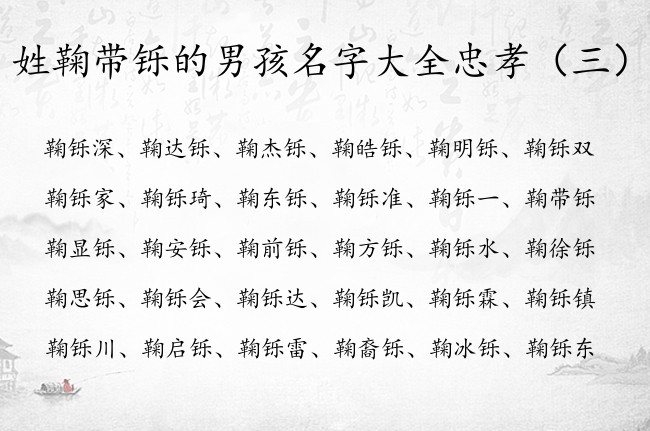 姓鞠带铄的男孩名字大全忠孝（三）
鞠铄深、鞠达铄、鞠杰铄、鞠皓铄、鞠明铄、鞠铄双
鞠铄家、鞠铄琦、鞠东铄、鞠铄准、鞠铄一、鞠带铄
鞠显铄、鞠安铄、鞠前铄、鞠方铄、鞠铄水、鞠徐铄
鞠思铄、鞠铄会、鞠铄达、鞠铄凯、鞠铄霖、鞠铄镇
鞠铄川、鞠启铄、鞠铄雷、鞠裔铄、鞠冰铄、鞠铄东